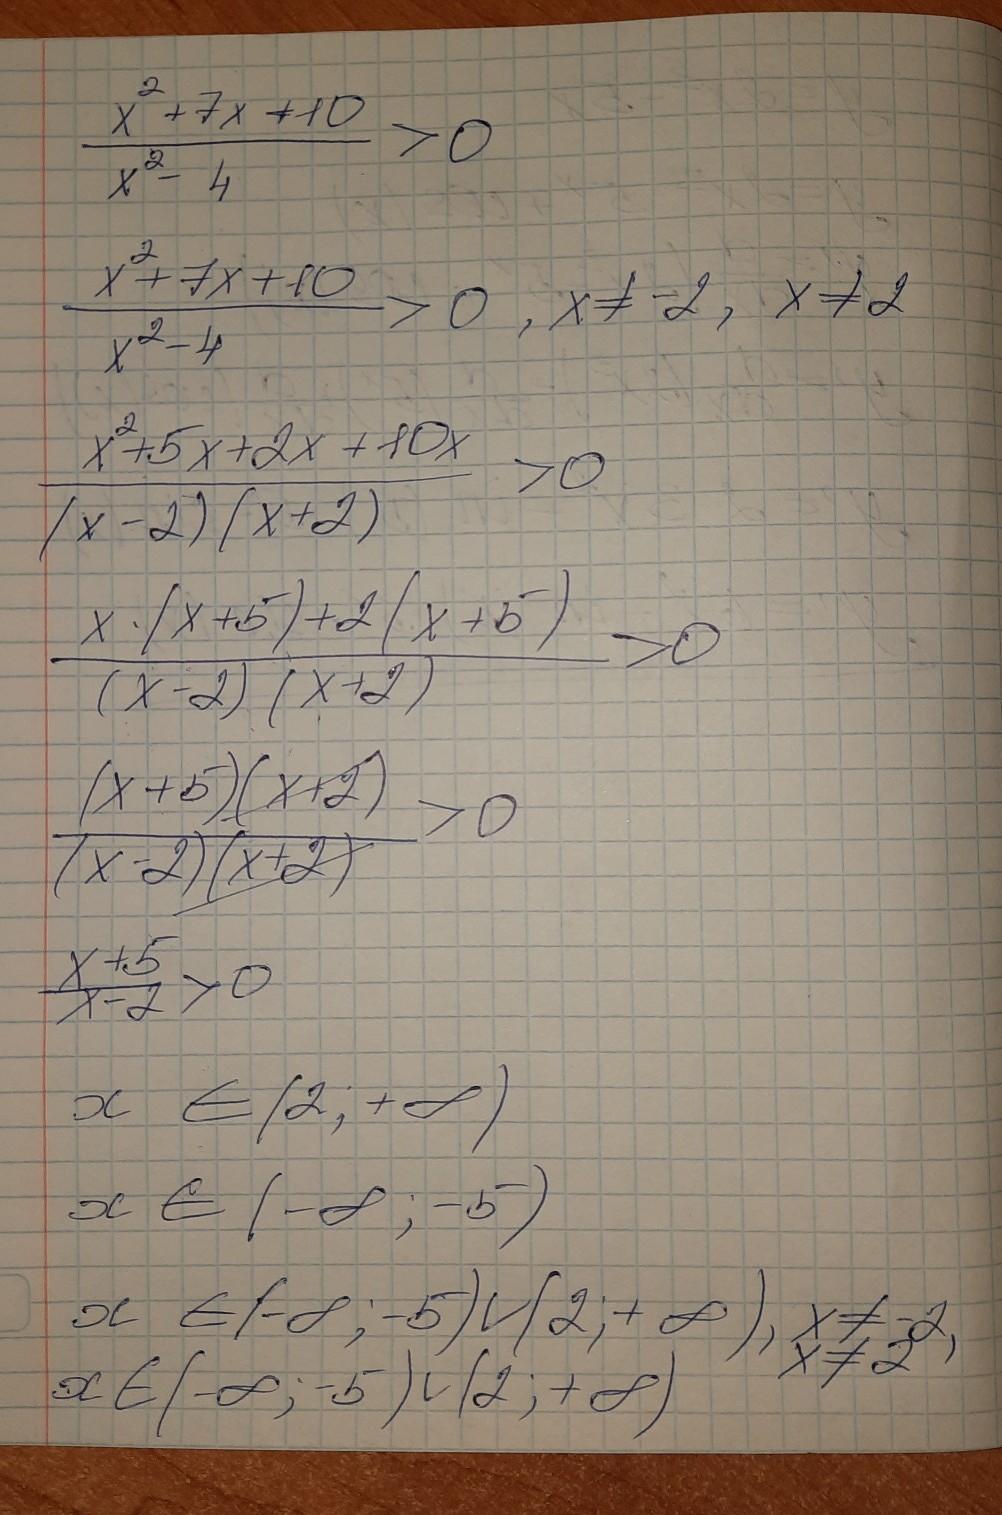 x²+7x+10
x²-4 >0
x²+7x+10
x²-4 >0, x≠-2, x≠2
x²+5x+2x+10x
(x-2)(x+2) >0
x·(x+5)+2(x+5)
(x-2)(x+2) >0
(x+5)(x+2)
(x-2)(x+2) >0
x+5
x-2 >0
x ∈(2;+∞)
x ∈(-∞;-5)
x ∈(-∞;-5)∨(2;+∞), x≠-2,
x≠2
x∈(-∞;-5)∨(2;+∞)